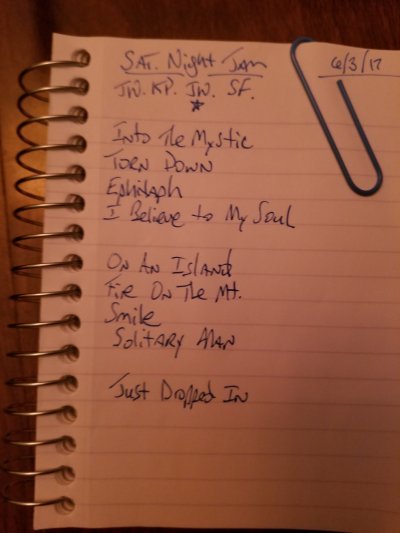 SAT. Night JAM
6/3/17
JW. KP. JW. SF.
*
Into The Mystic
TORN DOWN
Ephitaph
I Believe to My Soul
ON AN Island
Fire ON The Mt.
Smile
SolitARy MAN
Just Dropped IN